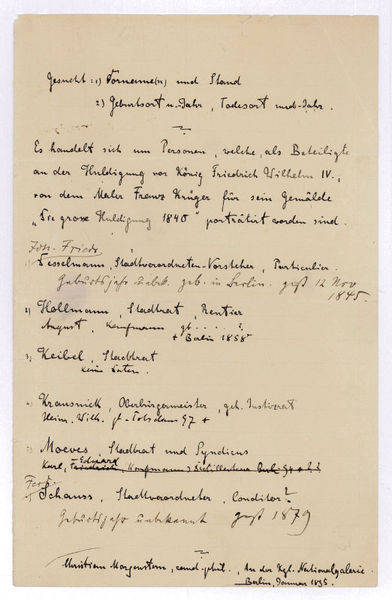 Gesucht: 1) Vorname(n) und Stand
2) Geburtsort u. Jahr, Todesort und Jahr.
Es handelt sich um Personen, welche, als Beteiligte
an der Huldigung vor König Friedrich Wilhelm IV.,
von dem Maler Franz Krüger für sein Gemälde
„Die grosse Huldigung 1840" porträtirt worden sind.
Joh. Friedr.
1) Desselmann, Stadtverordneten-Vorsteher, Particulier.
Geburtsjahr unbek. geb. in Berlin. gest 12 Nov
1845.
2) Hollmann, Stadtrat, Rentier
August, Kaufmann gb. . . . . ?
+ Berlin 1858
3) Keibel, Stadtrat
keine Daten.
4) Krausnick, Oberbürgermeister, geh. Justizrat
Heinr. Wilh. gb. Potsdam 97 +
5) Moeves, Stadtrat und Syndicus
Karl, Eduard
Friedrich, Kaufmann
Ferd.
6) Schauss, Stadtverordneter, Conditor?
Geburtsjahr unbekannt gest 1879
Christian Morgenstern, cand. phil., An der Kgl. Nationalgalerie.
Berlin, Januar 1895.